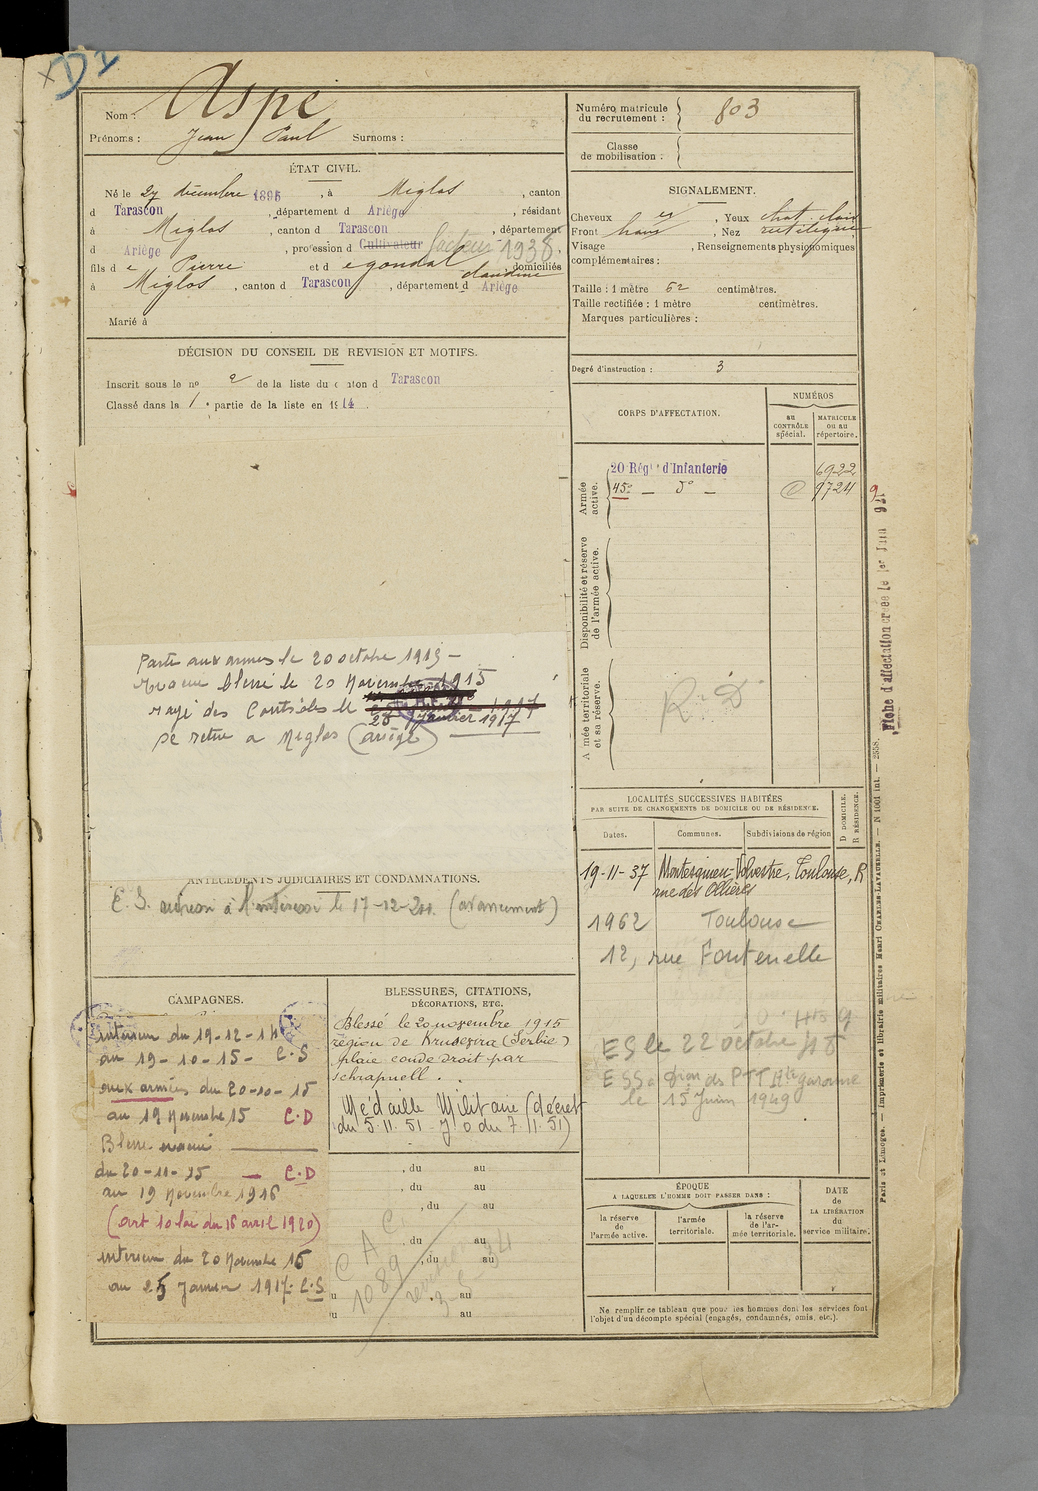 D1
Nom : Aspe
Prénoms : Jean Paul Surnoms :
ÉTAT CIVIL.
Né le 27 décembre 1895, à Miglos, canton
d Tarascon, département d Ariège, résidant
à Miglos, canton d Tarascon, département
d Ariège, profession d Cultivateur facteur 1938.
fils de Pierre et de gondal claudine domiciliés
à Miglos, canton d Tarascon, département d Ariège
Marié à
DÉCISION DU CONSEIL DE REVISION ET MOTIFS.
Inscrit sous le no 2 de la liste du canton d Tarascon
Classé dans la 1e partie de la liste en 1914.
Parti aux armes le 20 octobre 1915 -
évacué blessé le 20 Novembre 1915
rayé des Contrôles le
25 Janvier 1917
se retire a Miglos (ariège)
ANTÉCÉDENTS JUDICIAIRES ET CONDAMNATIONS.
E. S. adressé à l'intéressé le 17-12-20. (avancement)
CAMPAGNES.
intérieur du 19-12-14
au 19-10-15- C.S
aux armées du 20-10-15
au 19 Novembre 15 C.D
Blessé évacué
du 20-11-15 — C.D
au 19 Novembre 1916
(art 10 loi du 16 avril 1920)
intérieur du 20 Novembre 16
au 25 Janvier 1917. C.S
BLESSURES, CITATIONS,
DÉCORATIONS, ETC.
Blessé le 20 novembre 1915
région de Krusevra (Serbie)
plaie coude droit par
schrapnell.
Médaille Militaire (décret
du 5.11.51 - J O du 7.11.51)
, du au
, du au
, du au
, du au
, du au
u au
u au
C A C
1089
3-5-34
Numéro matricule
du recrutement : 803
Classe
de mobilisation :
SIGNALEMENT.
Cheveux , Yeux chat. clair
Front haut, Nez rectiligne
Visage , Renseignements physionomiques
complémentaires :
Taille : 1 mètre 62 centimètres.
Taille rectifiée : 1 mètre centimètres.
Marques particulières :
Degré d'instruction : 3
CORPS D'AFFECTATION.
NUMÉROS
au
CONTRÔLE
spécial.
MATRICULE
ou au
répertoire.
Armée
active.
20 Régt d'Infanterie 6922
45e — do — C 9724
Disponibilité et réserve
de l'armée active.
Armée territoriale
et sa réserve.
R. D
Fiche d'affectation créée le 1er Juin
LOCALITÉS SUCCESSIVES HABITÉES
PAR SUITE DE CHANGEMENTS DE DOMICILE OU DE RÉSIDENCE.
Dates. Communes. Subdivisions de région
D DOMICILE.
R RÉSIDENCE.
19-11-37 Montesquieu-Volvestre, Toulouse, R
rue des Ollières
1962 Toulouse
12, rue Fontenelle
ES le 22 octobre 48
ESS a Dion des PTT Hte garonne
le 15 Juin 1949
ÉPOQUE
A LAQUELLE L'HOMME DOIT PASSER DANS :
la réserve
de l'armée active.
l'armée
territoriale.
la réserve
de l'ar-
mée territoriale.
DATE
de
LA LIBÉRATION
du
service militaire.
Ne remplir ce tableau que pour les hommes dont les services font
l'objet d'un décompte spécial (engagés, condamnés, omis, etc.).
Paris et Limoges. — Imprimerie et librairie militaires Henri CHARLES-LAVAUZELLE. — N 1001 int. — 2558.